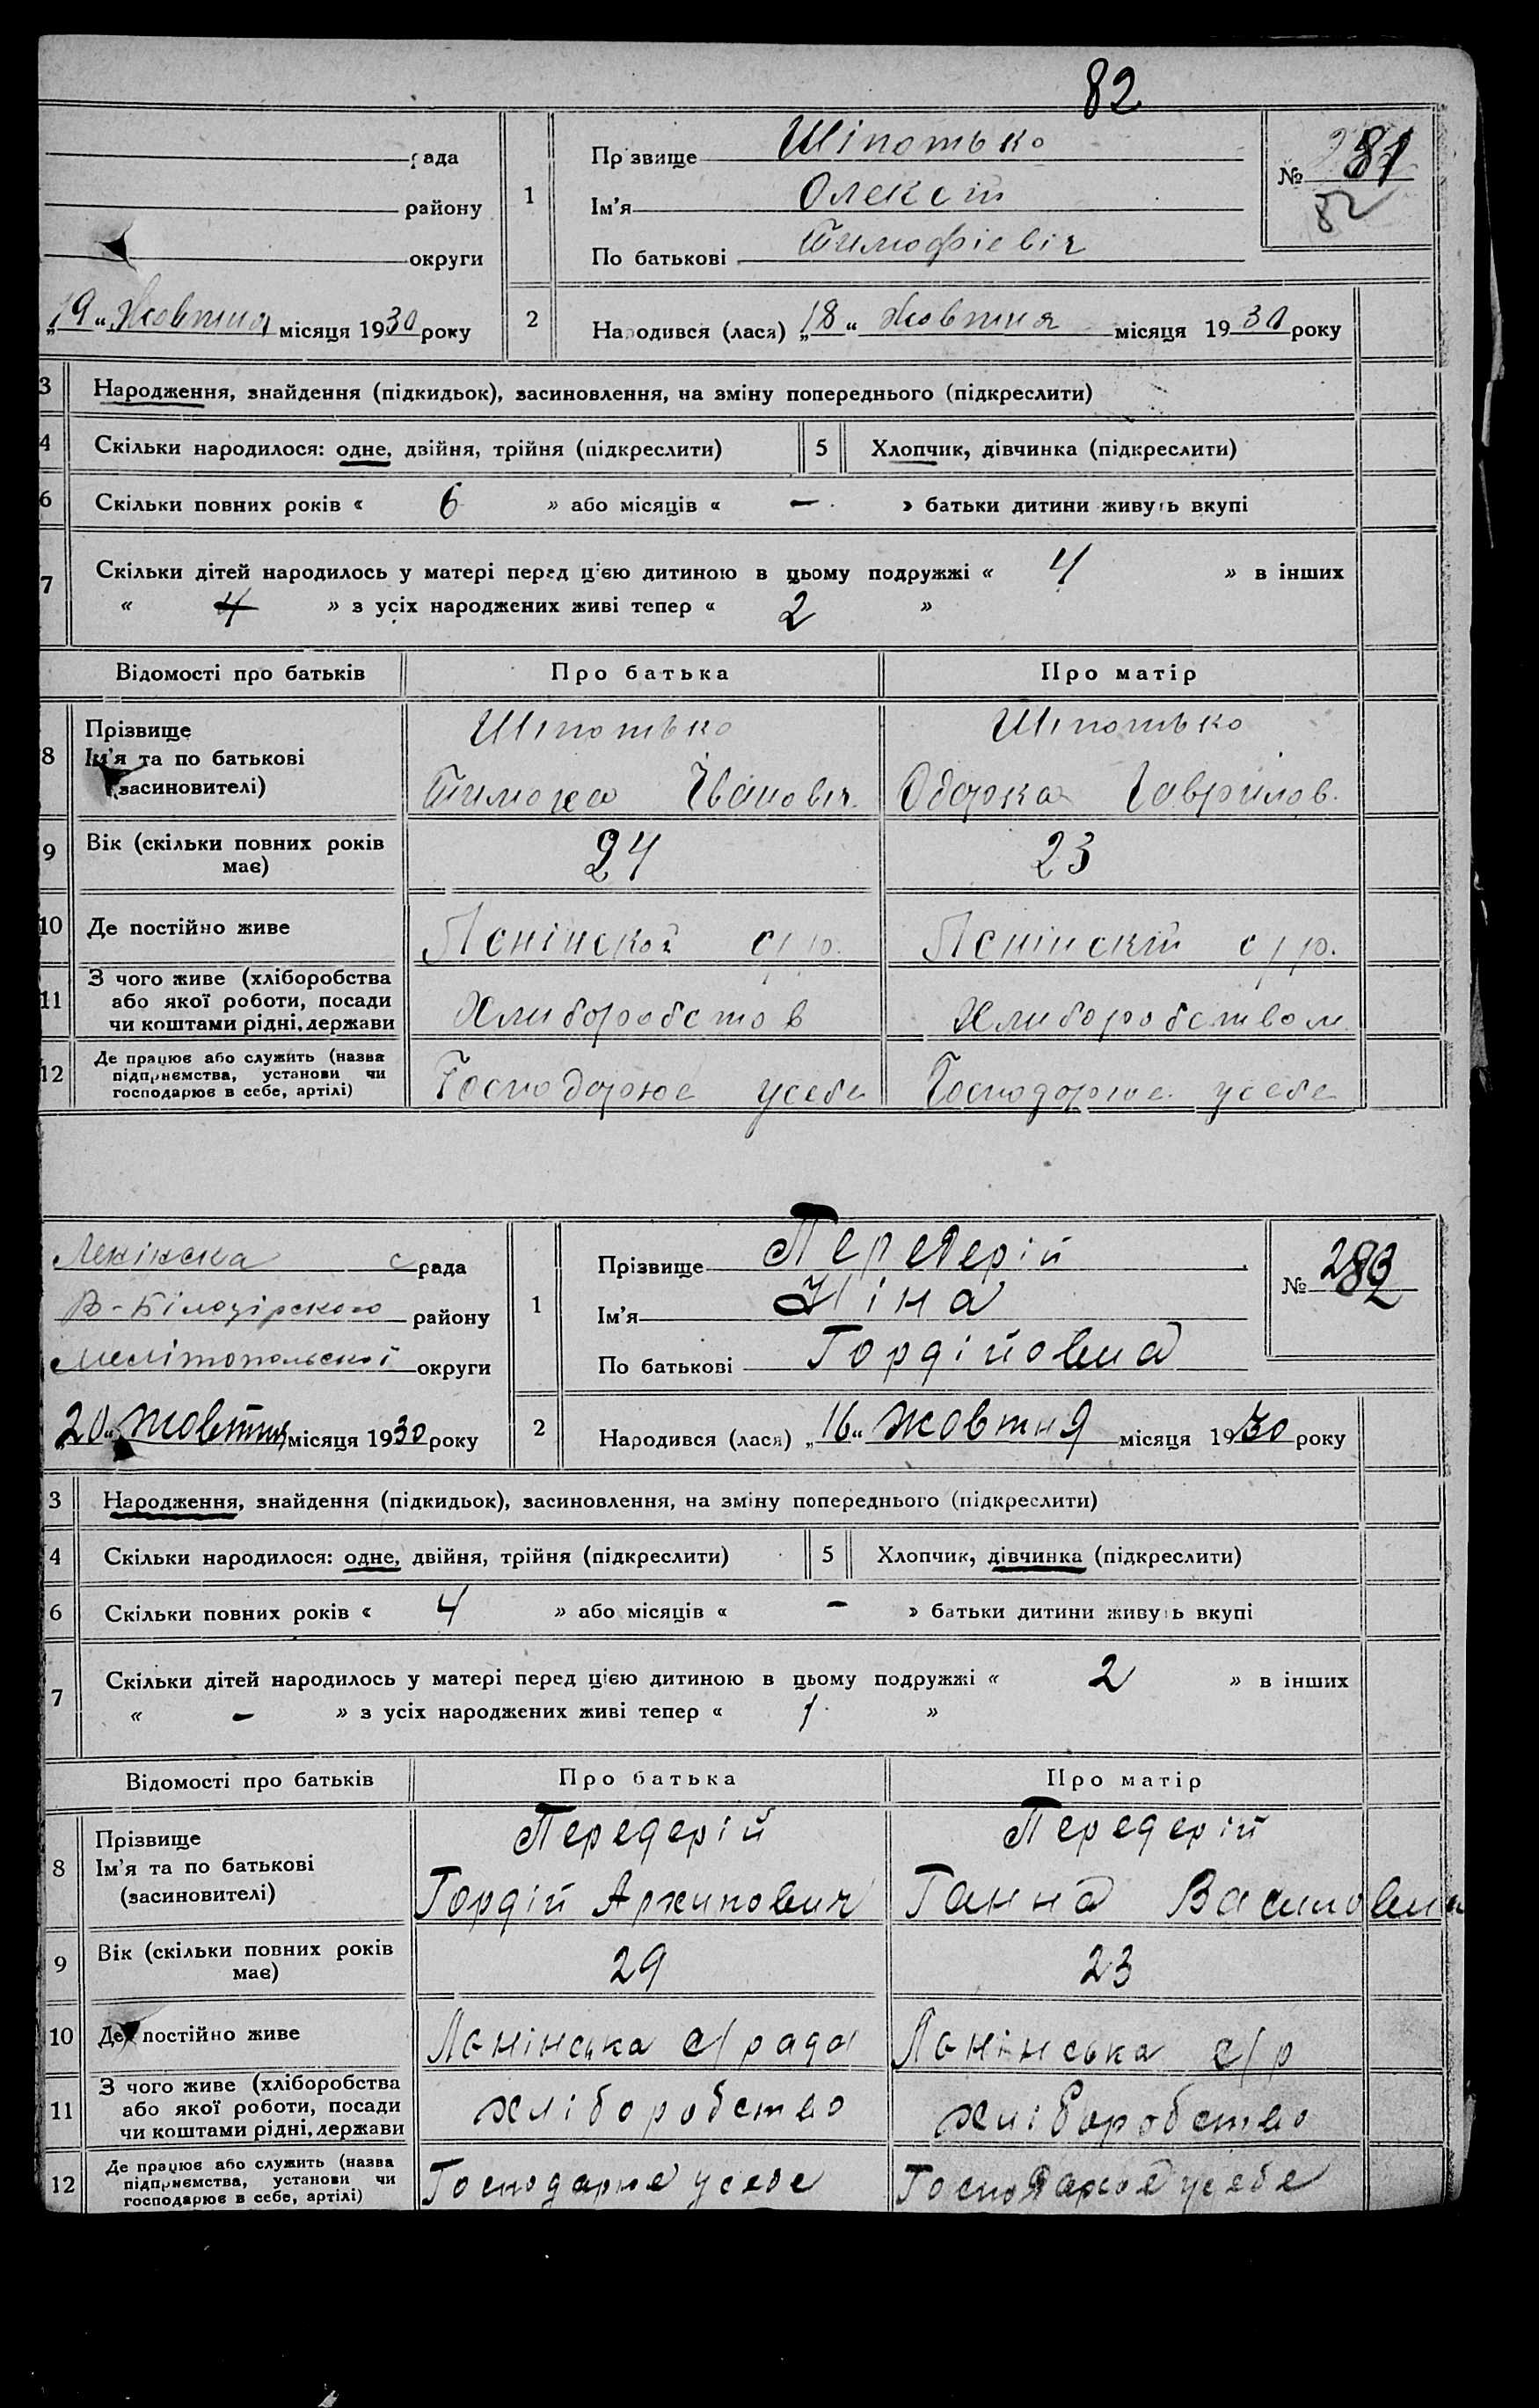 82
рада
району
округи
„19“ Жовтня місяця 1930 року
1
Прізвище Шіпотько
Ім'я Олексій
По батькові Тимофіевіч
№ 281
82
2
Народився (лася) „18“ Жовтня місяця 1930 року
3 Народження, знайдення (підкидьок), засиновлення, на зміну попереднього (підкреслити)
4 Скільки народилося: одне, двійня, трійня (підкреслити) 5 Хлопчик, дівчинка (підкреслити)
6 Скільки повних років « 6 » або місяців « — » батьки дитини живуть вкупі
7 Скільки дітей народилось у матері перед цією дитиною в цьому подружжі « 4 » в інших
« 4 » з усіх народжених живі тепер « 2 »
Відомості про батьків Про батька Про матір
8 Прізвище
Ім'я та по батькові
(засиновителі)
Шіпотько
Тимоха Іванович.
Шіпотько
Одарка Гаврилов.
9 Вік (скільки повних років має) 24 23
10 Де постійно живе Ленінской с/р. Ленінскій с/р.
11 З чого живе (хліборобства
або якої роботи, посади
чи коштами рідні, держави
Хлиборобств Хлиборобством
12 Де працює або служить (назва
підприємства, установи чи
господарює в себе, артілі)
Господорюе усебе Господорюе усебе
Ленінска с рада
В-Білозірского району
Мелітопольскої округи
„20“ Жовтня місяця 1930 року
1
Прізвище Передерій
Ім'я Ніна
По батькові Гордійовна
№ 282
2
Народився (лася) „16“ жовтня місяця 1930 року
3 Народження, знайдення (підкидьок), засиновлення, на зміну попереднього (підкреслити)
4 Скільки народилося: одне, двійня, трійня (підкреслити) 5 Хлопчик, дівчинка (підкреслити)
6 Скільки повних років « 4 » або місяців « — » батьки дитини живуть вкупі
7 Скільки дітей народилось у матері перед цією дитиною в цьому подружжі « 2 » в інших
« — » з усіх народжених живі тепер « 1 »
Відомості про батьків Про батька Про матір
8 Прізвище
Ім'я та по батькові
(засиновителі)
Передерій
Гордій Архипович
Передерій
Ганна Василовна
9 Вік (скільки повних років має) 29 23
10 Де постійно живе Ленінська с/рада Ленінська с/р
11 З чого живе (хліборобства
або якої роботи, посади
чи коштами рідні, держави
хліборобство хліборобство
12 Де працює або служить (назва
підприємства, установи чи
господарює в себе, артілі)
Господарює усебе Господарює усебе